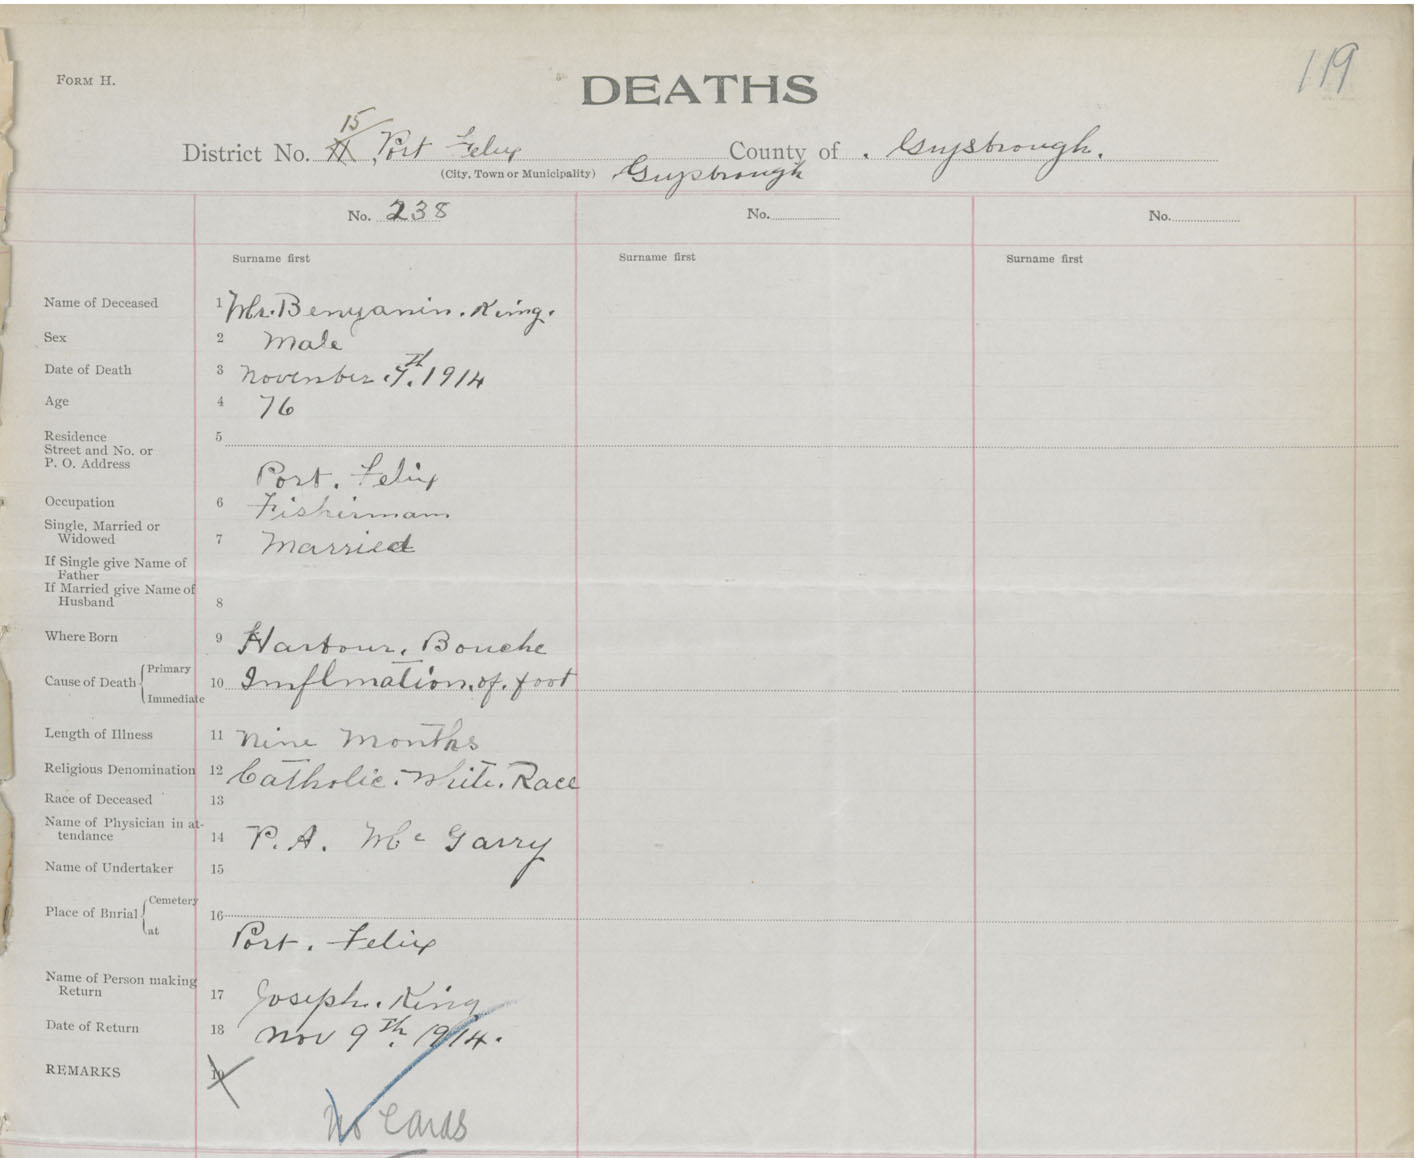 119
FORM H.
DEATHS
15
District No. 11 Port Felix County of . Guysbrough.
(City, Town or Municipality) Guysbrough
No. 238 No. No.
Surname first Surname first Surname first
Name of Deceased 1 Mr. Benyamin. King.
Sex 2 Male
Date of Death 3 November. 7th. 1914
Age 4 76
Residence 5
Street and No. or
P. O. Address
Port. Felix
Occupation 6 Fishermam
Single, Married or
Widowed 7 Married
If Single give Name of
Father
If Married give Name of
Husband 8
Where Born 9 Harbour. Bouche
Cause of Death Primary
10 Imflmation. of. foot
Immediate
Length of Illness 11 Nine Months
Religious Denomination 12 Catholic. White. Race
Race of Deceased 13
Name of Physician in at-
tendance 14 P. A. Mc Garry
Name of Undertaker 15
Place of Burial Cemetery
16
at
Port. Felix
Name of Person making
Return 17 Joseph. King
Date of Return 18 Nov 9th. 1914.
REMARKS 19
No Cards